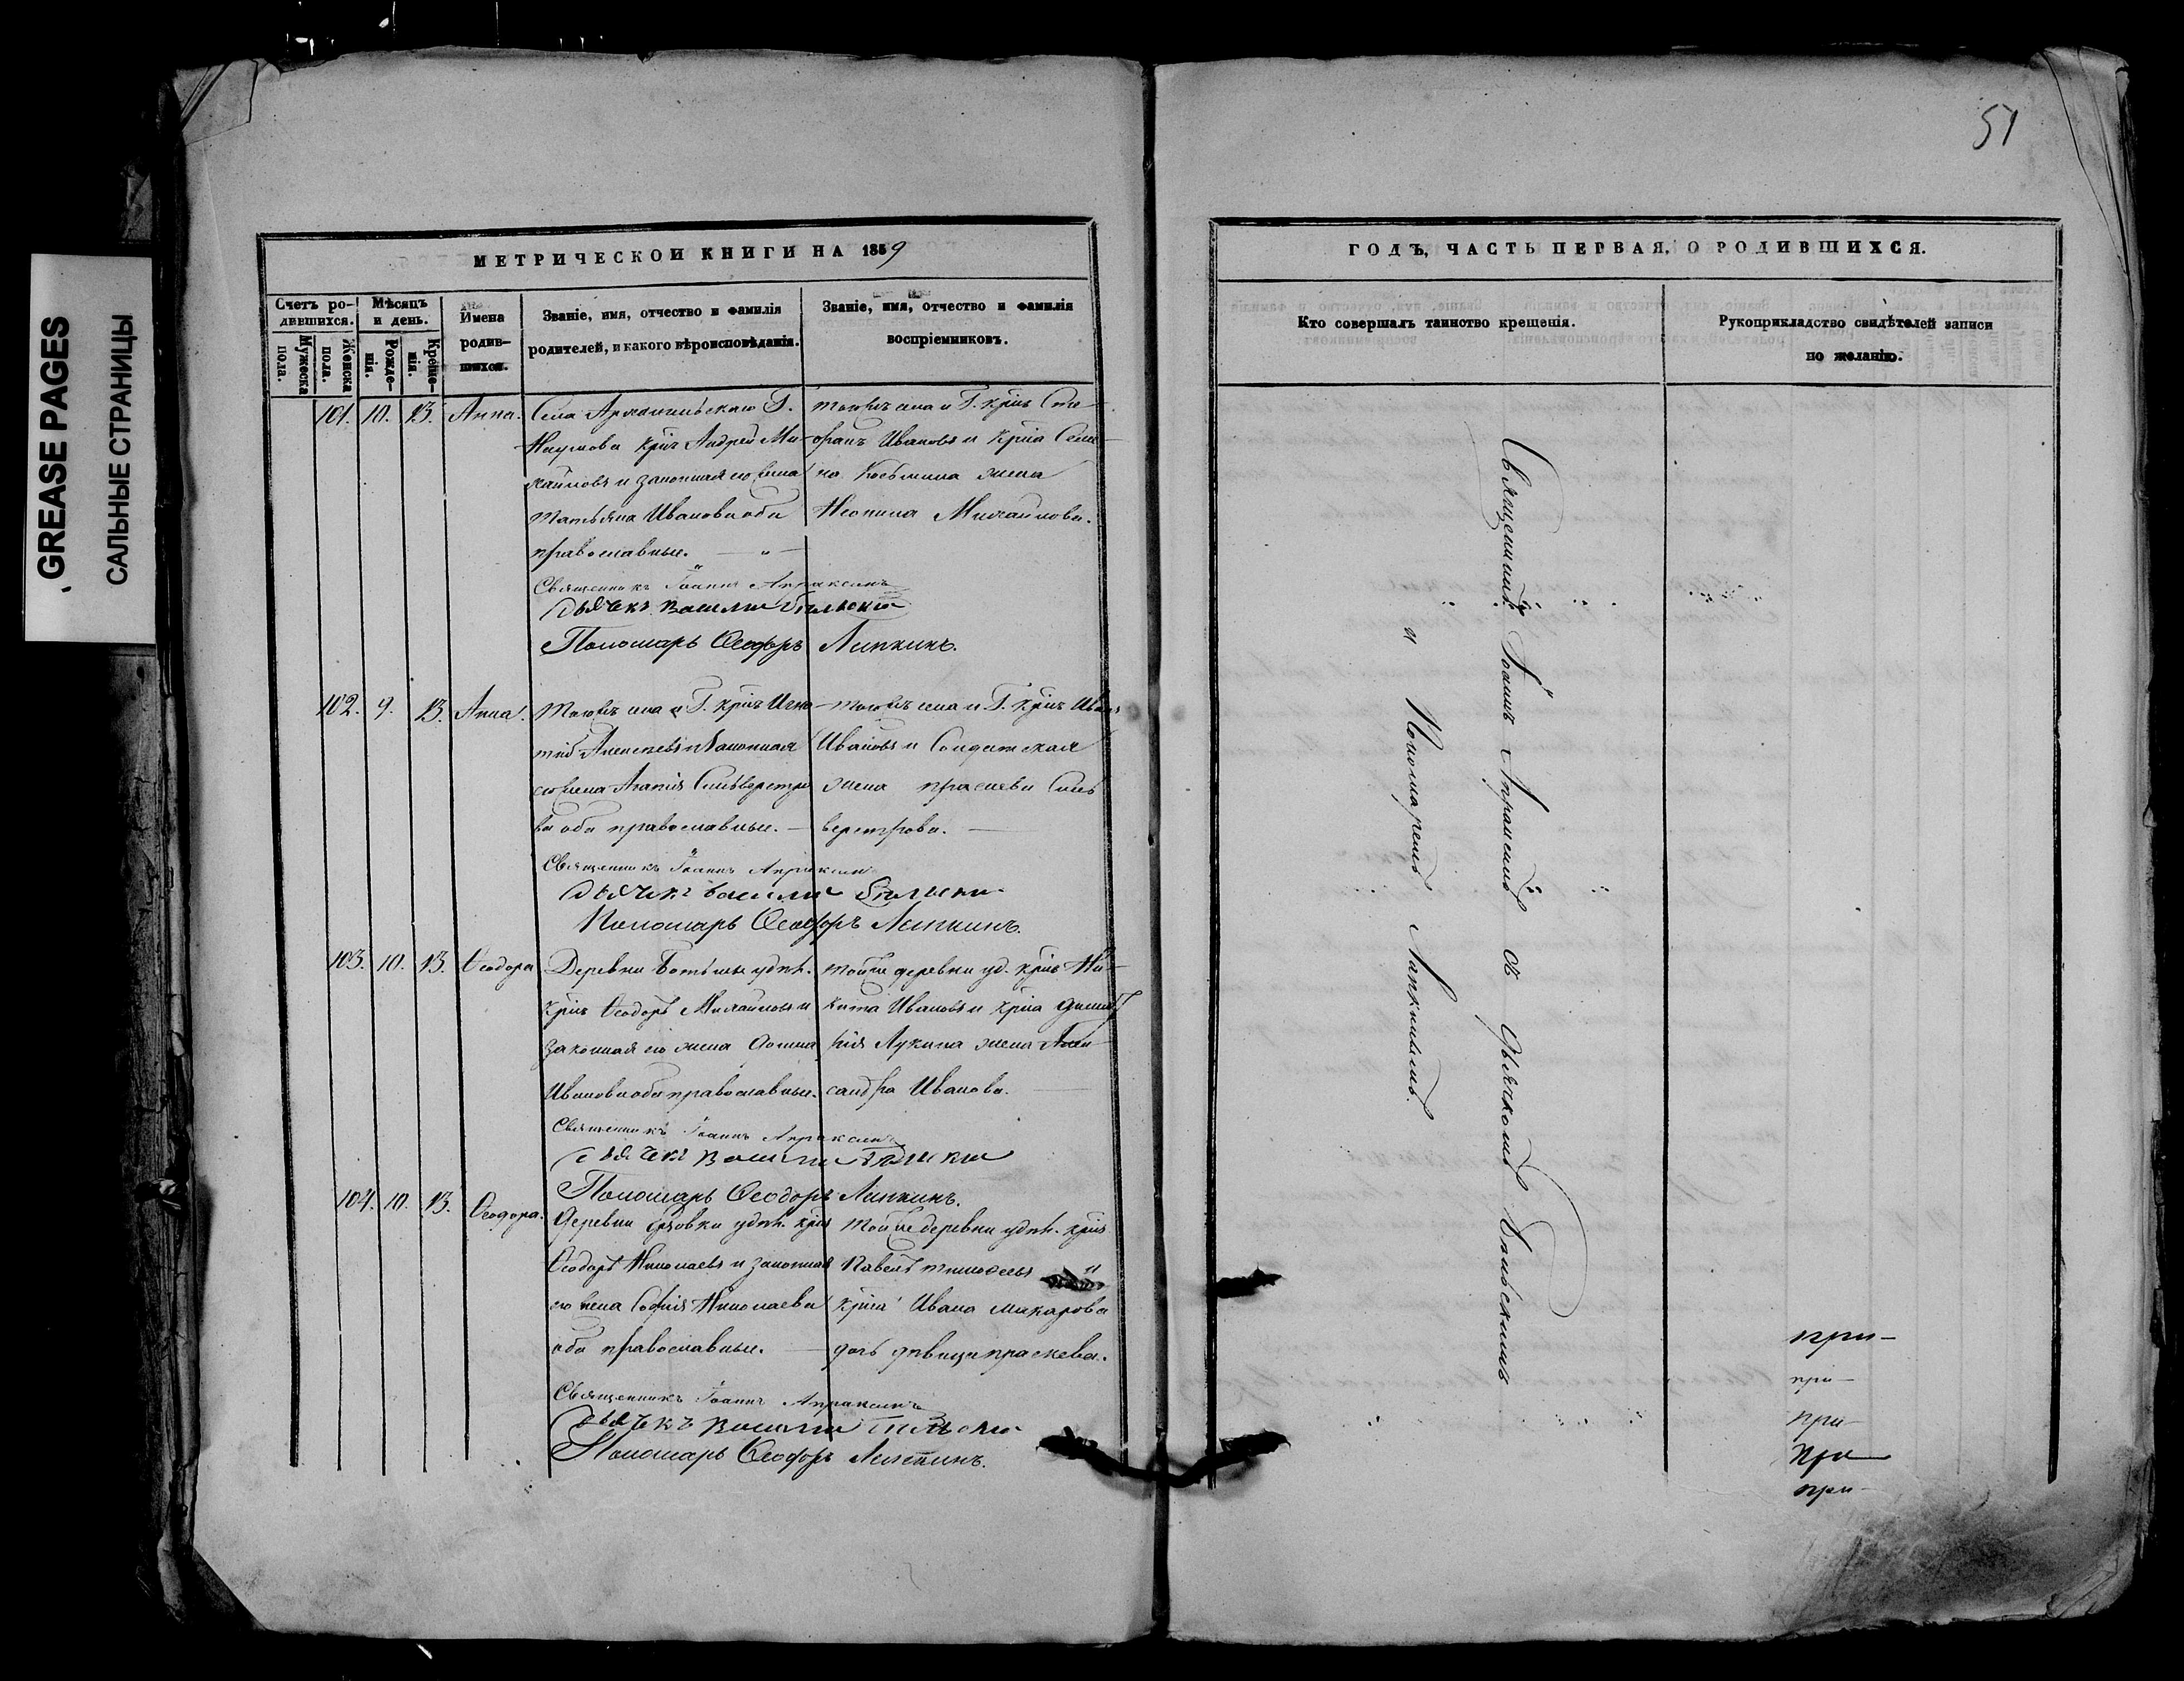 GREASE PAGES
САЛЬНЫЕ СТРАНИЦЫ
51
МЕТРИЧЕСКОЙ КНИГИ НА 1859
Счетъ родившихся.
Мужеска пола.
Женска пола.
Мѣсяцъ и день.
Рожденія.
Крещенія.
Имена родившихся.
Званіе, имя, отчество и фамилія
родителей, и какого вѣроисповѣданія.
Званіе, имя, отчество и фамилія
воспріемниковъ.
101. 10. 13. Анна.
Села Архангельскаго Г.
Наумова крнъ Андрей Ми-
хайловъ и законная его жена
Татьяна Иванова оба
православные.
тогожъ села и Г. крнъ Сте-
фанъ Ивановъ и крна Семе-
на Косьмина жена
Неонила Михайлова.
Священникъ Іоаннъ Апраксинъ
Дьячекъ Василій Бѣльскій
Пономарь Ѳеодоръ Лапкинъ.
102. 9. 13. Анна.
Тогожъ села и Г. крнъ Игна-
тій Алексѣевъ и законная
его жена Агапія Сильверстро-
ва оба православные.
тогожъ села и Г. крнъ Иванъ
Ивановъ и Солдатская
жена Праскева Силь-
верстрова.
Священникъ Іоаннъ Апраксинъ
Дьячекъ Василій Бѣльскій
Пономарь Ѳеодоръ Лапкинъ.
103. 10. 13. Ѳеодора
Деревни удѣл.
крнъ Ѳеодоръ Михайловъ и
законная его жена
Иванова оба православные.
тойже деревни уд. крнъ Ни-
кита Ивановъ и крна Димит-
рія Лукина жена Алек-
сандра Иванова.
Священникъ Іоаннъ Апраксинъ
Дьячекъ Василій Бѣльскій
Пономарь Ѳеодоръ Лапкинъ.
104. 10. 13. Ѳеодора.
Деревни удѣл. крнъ
Ѳеодоръ Николаевъ и законная
его жена Софія Николаева
оба православные.
Тойже деревни удѣл. крнъ
Павелъ Тимоѳеевъ и
крна Ивана Макарова
дочь дѣвица Праскева.
Священникъ Іоаннъ Апраксинъ
Дьячекъ Василій Бѣльскій
Пономарь Ѳеодоръ Лапкинъ.
ГОДЪ, ЧАСТЬ ПЕРВАЯ, О РОДИВШИХСЯ.
Кто совершалъ таинство крещенія.
Рукоприкладство свидѣтелей записи
по желанію.
Священникъ Іоаннъ Апраксинъ съ Дьячкомъ Бѣльскимъ
и Пономаремъ Лапкинымъ.
при-
при-
при-
При-
при-